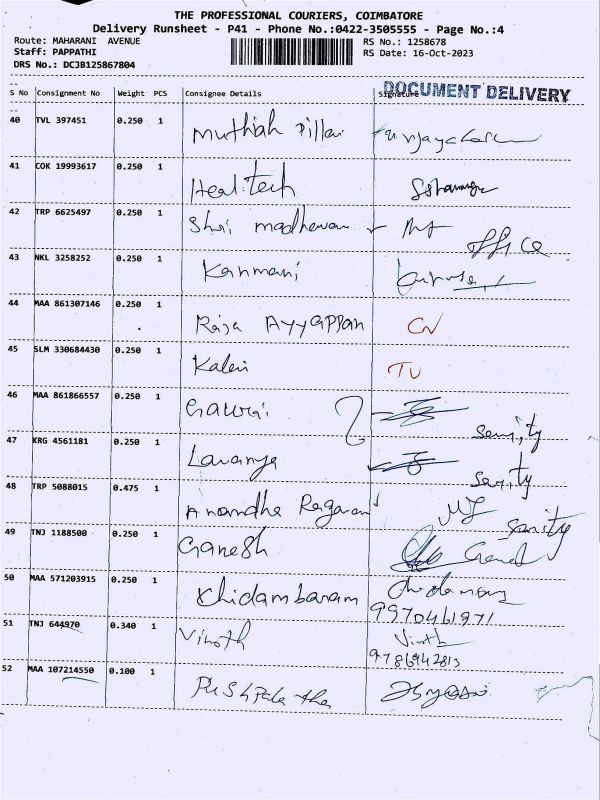 THE PROFESSIONAL COURIERS, COIMBATORE
Delivery Runsheet - P41 - Phone No.:0422-3505555 - Page No.:4
Route: MAHARANI AVENUE RS No.: 1258678
Staff: PAPPATHI RS Date: 16-Oct-2023
DRS No.: DCJB125867804
DOCUMENT DELIVERY
S No Consignment No Weight PCS Consignee Details Signature
40 TVL 397451 0.250 1
Muthiah Pillai
41 COK 19993617 0.250 1
Heal tech
42 TRP 6625497 0.250 1
Shri madhavan
office
43 NKL 3258252 0.250 1
Kanmani
44 MAA 861307146 0.250 1
Raja Ayyappan CN
45 SLM 330684430 0.250 1
Kalai TU
46 MAA 861866557 0.250 1
Gawri
47 KRG 4561181 0.250 1
Lavanya
48 TRP 5088015 0.475 1
Anandha Ragavan
49 TNJ 1188500 0.250 1
Ganesh
50 MAA 571203915 0.250 1
Chidambaram
9970461971
51 TNJ 644970 0.340 1
Vinoth Vinoth
9786942813
52 MAA 107214550 0.100 1
Pushpalatha